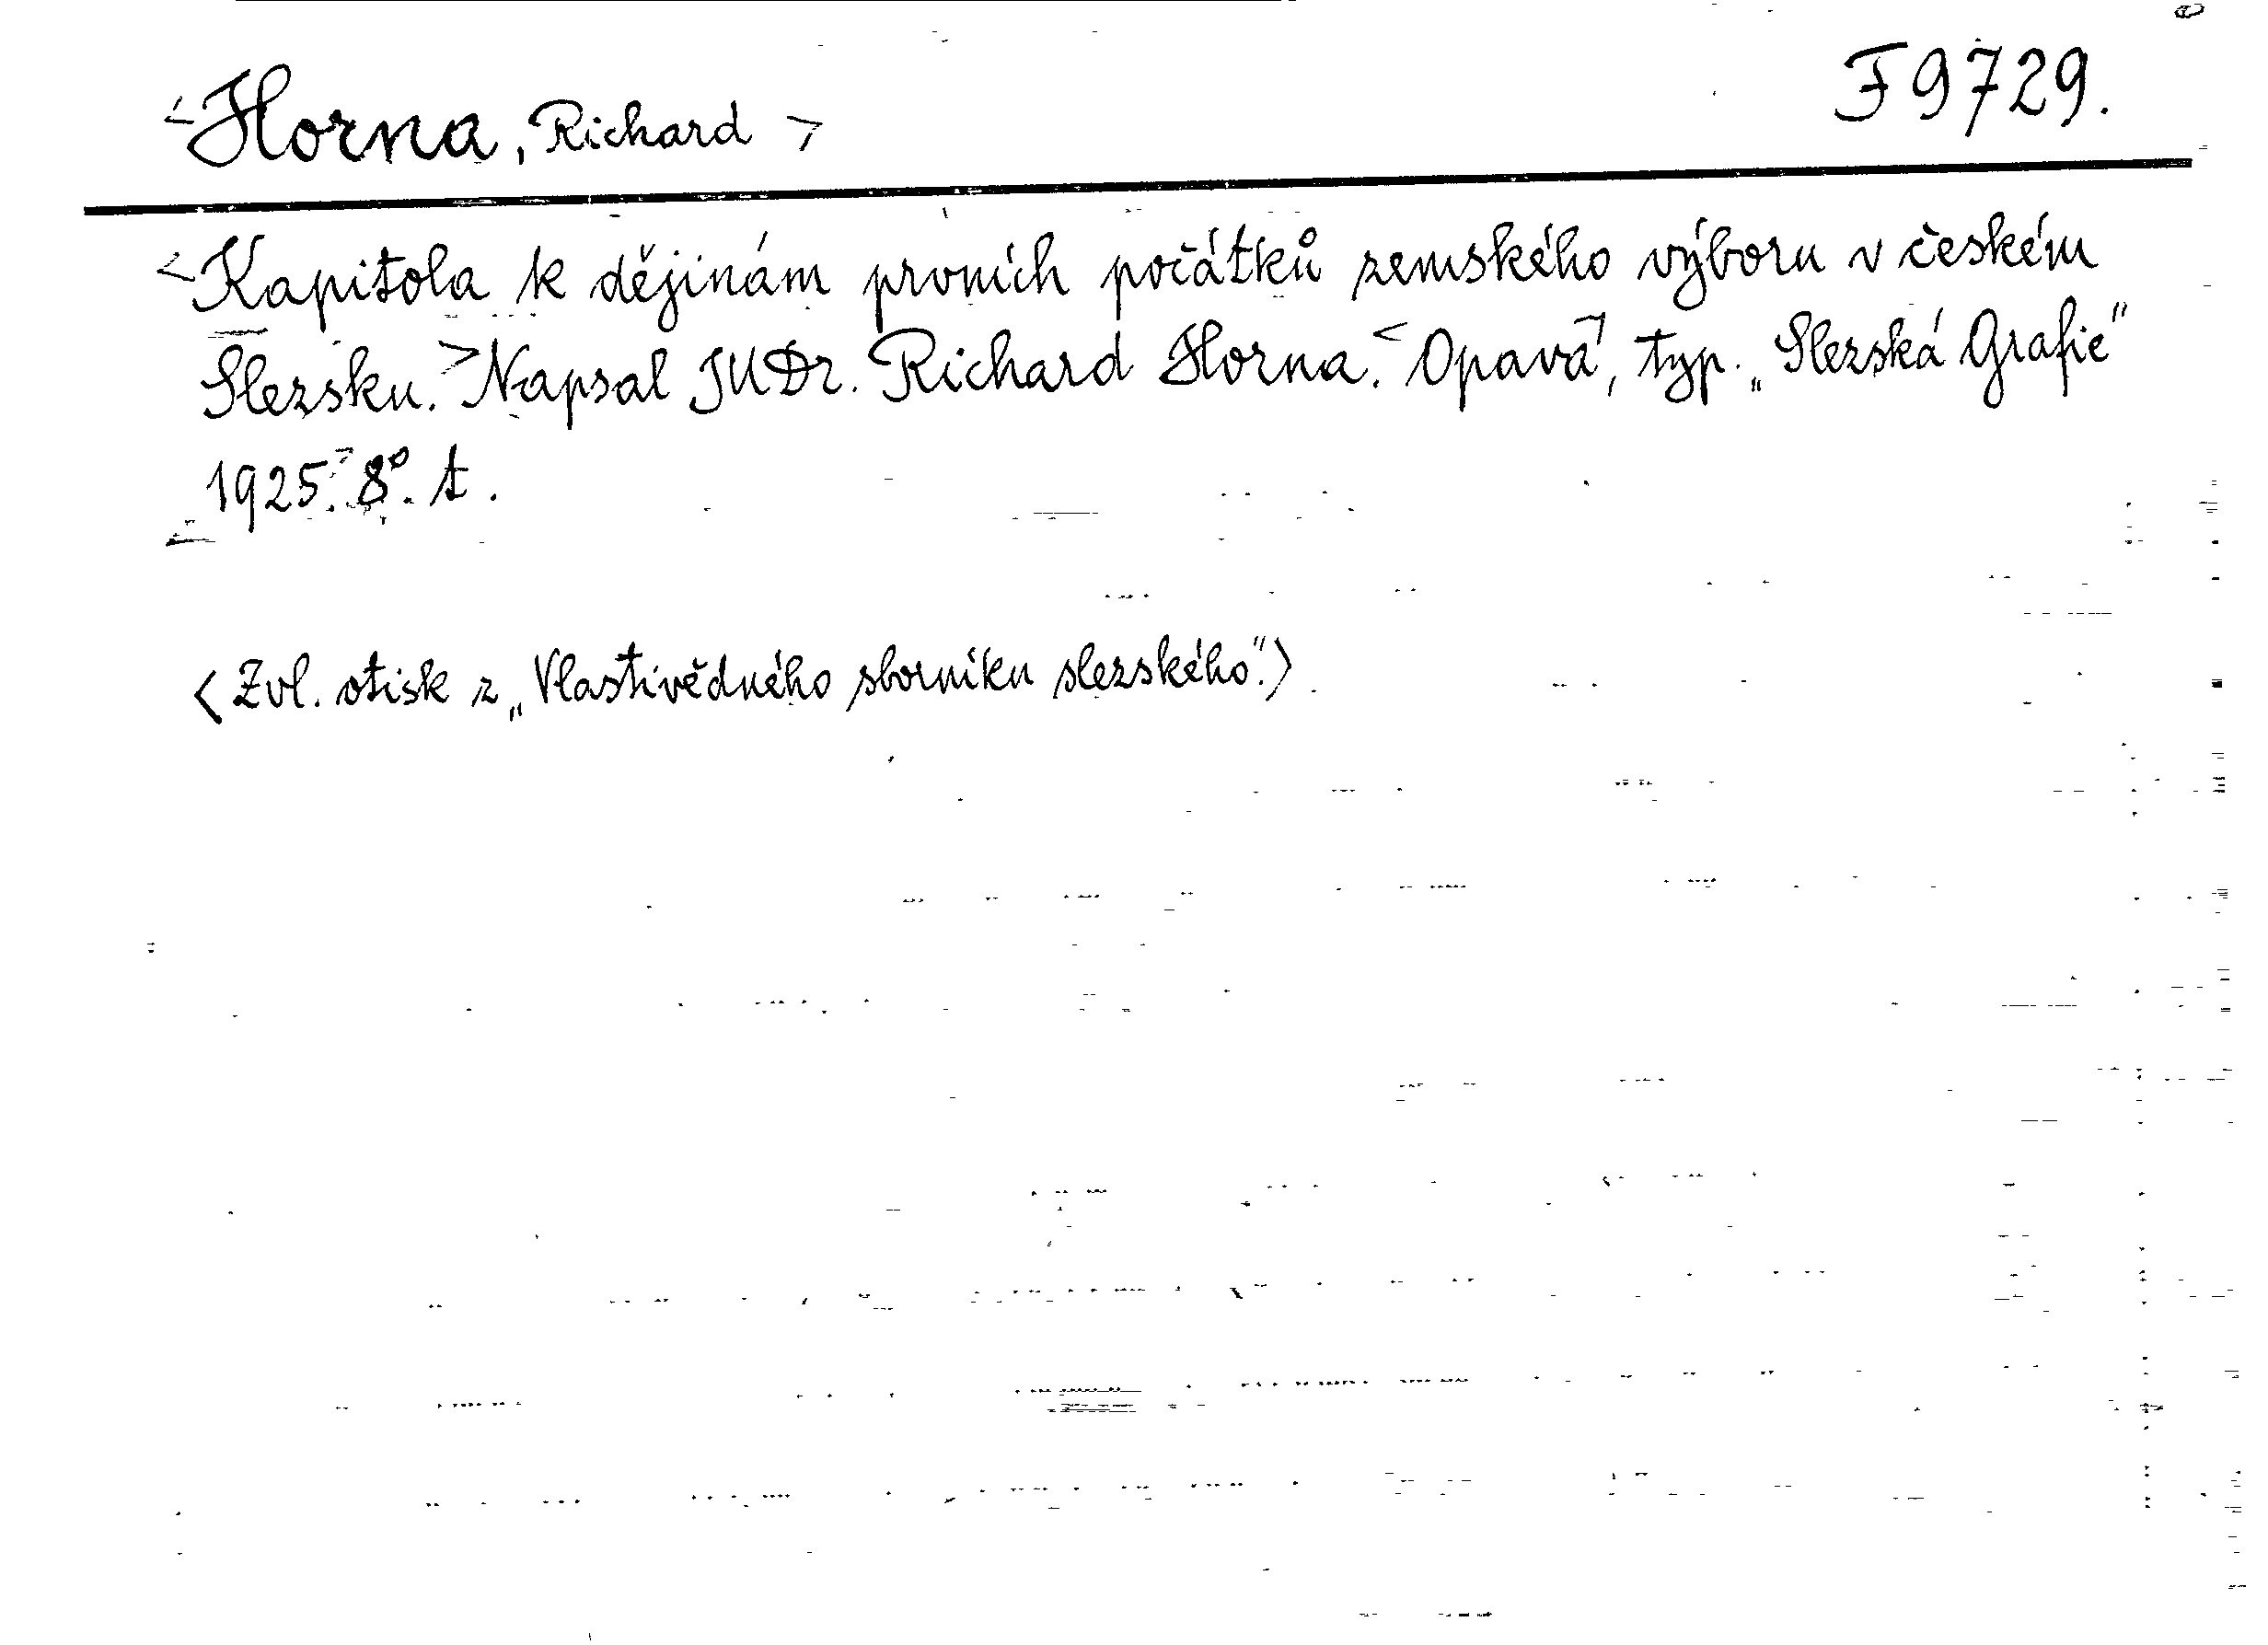 <Horna, Richard> F 9729.
<Kapitola k dějinám prvních počátků zemského výboru v českém
Slezsku.> Napsal JUDr. Richard Horna. <Opava>, typ. „Slezská Grafie"
1925.> 8°. t.
<Zvl. otisk z „Vlastivědného sborníku slezského".>